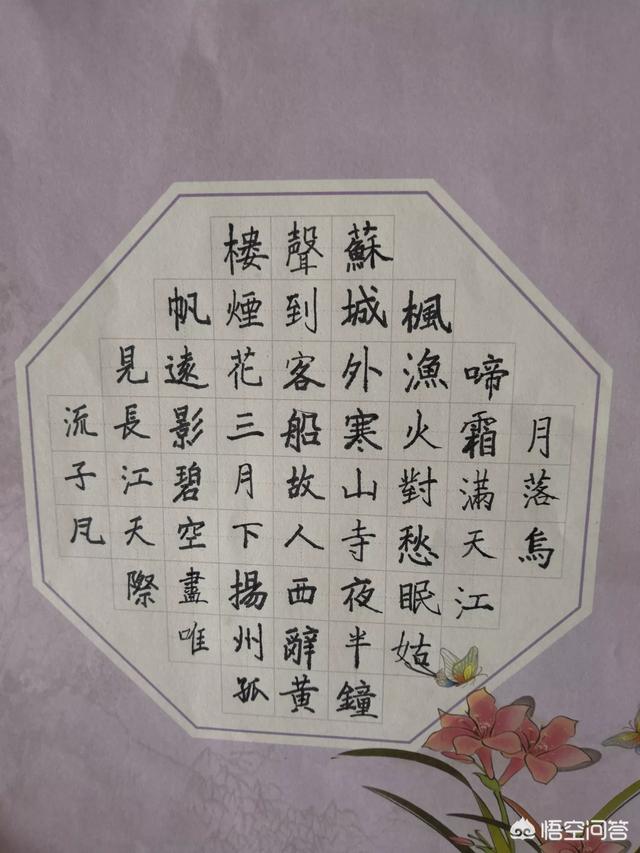 月落烏
啼霜滿天江
楓漁火對愁眠姑
蘇城外寒山寺夜半鐘
聲到客船故人西辭黃
樓煙花三月下揚州孤
帆遠影碧空盡唯
見長江天際
流子凡
悟空问答